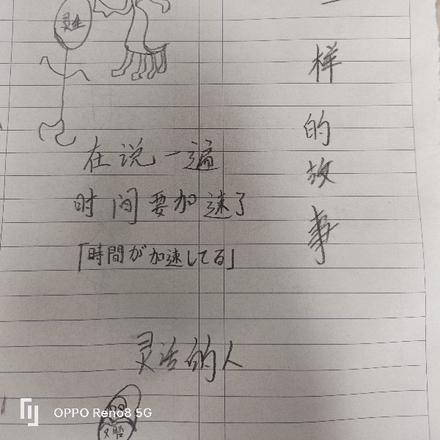 一样的故事
在说一遍
时间要加速了
「時間が加速してる」
灵活的人
OPPO Reno8 5G